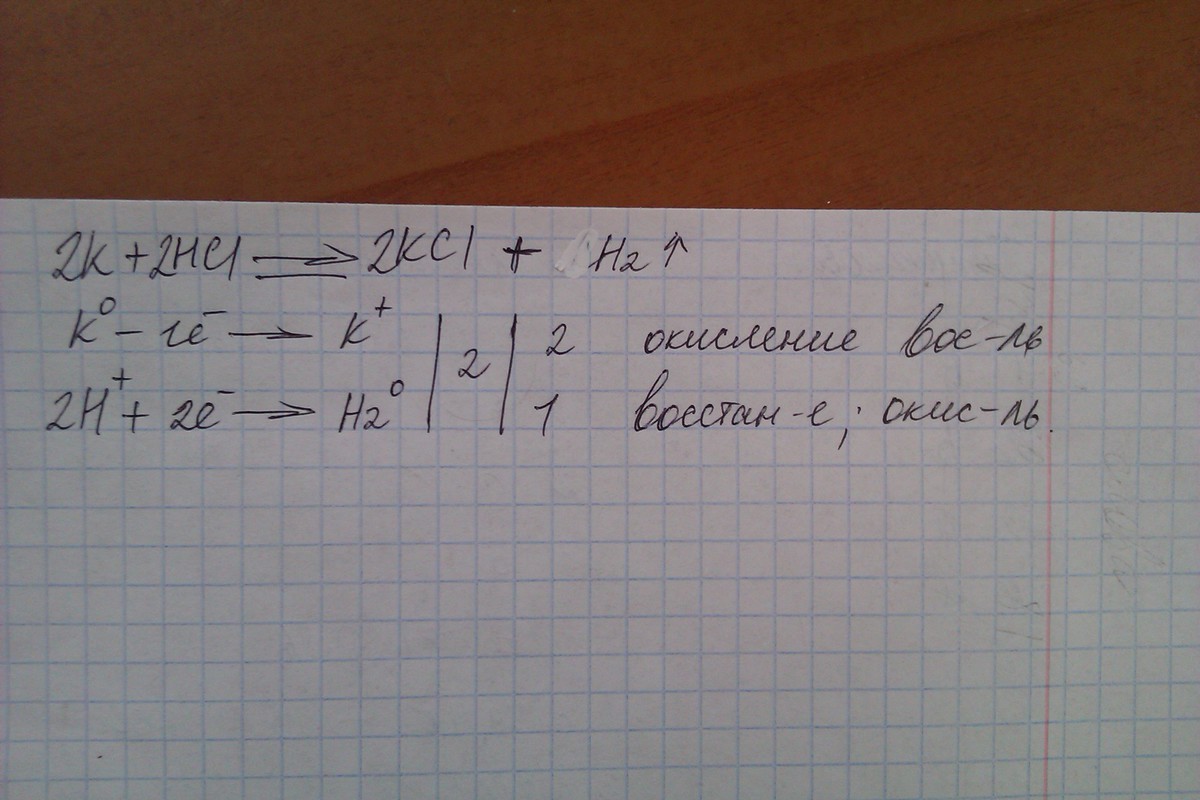 2K + 2HCl → 2KCl + H₂↑
K⁰ – 1e⁻ → K⁺ | 2 | 2 окисление вос-ль
2H⁺ + 2e⁻ → H₂⁰ | | 1 восстан-е; окис-ль.